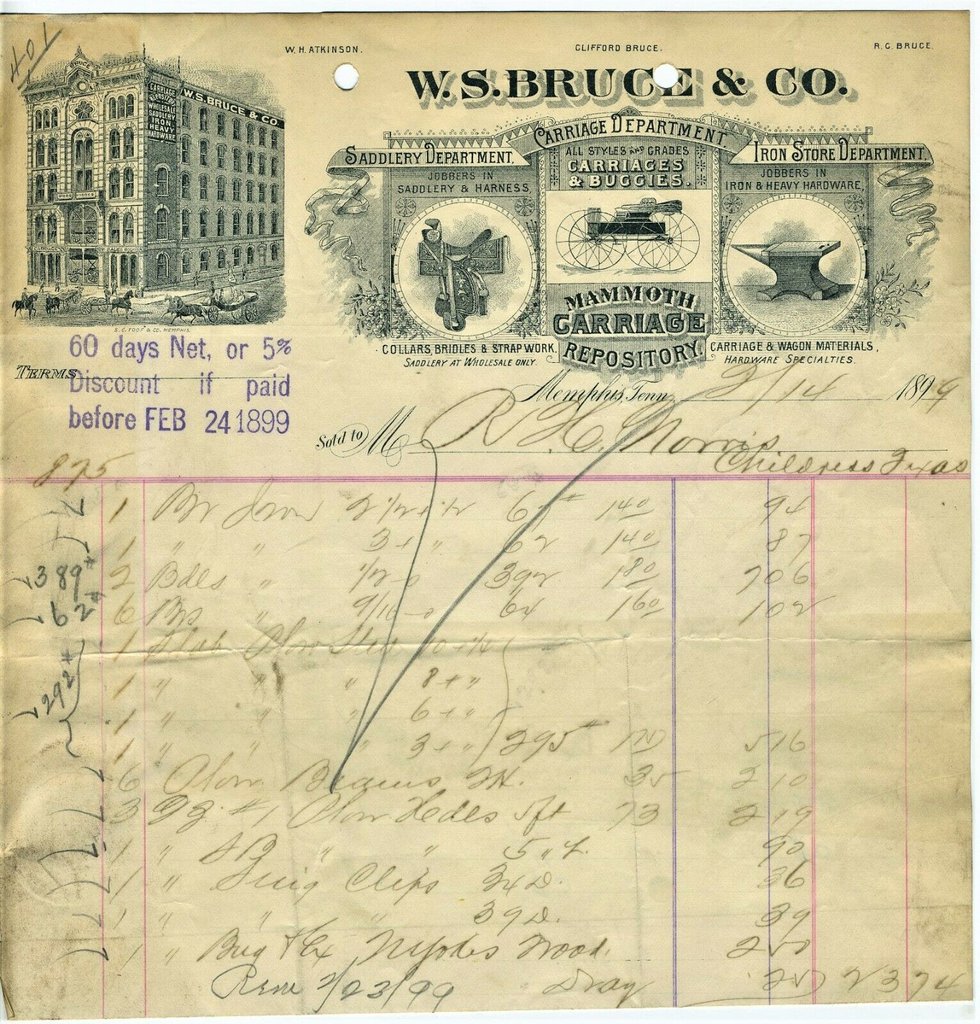 401
W. H. ATKINSON. CLIFFORD BRUCE. R. C. BRUCE.
W. S. BRUCE & CO.
BRUCE
W.S. BRUCE & CO
CARRIAGE
WHOLESALE
SADDLERY
IRON
HEAVY
HARDWARE
CARRIAGE DEPARTMENT
ALL STYLES AND GRADES
CARRIAGES
& BUGGIES.
SADDLERY DEPARTMENT.
JOBBERS IN
SADDLERY & HARNESS,
IRON STORE DEPARTMENT.
JOBBERS IN
IRON & HEAVY HARDWARE,
MAMMOTH
CARRIAGE
REPOSITORY.
COLLARS, BRIDLES & STRAP WORK,
SADDLERY AT WHOLESALE ONLY.
CARRIAGE & WAGON MATERIALS,
HARDWARE SPECIALTIES.
S. C. TOOF & CO. MEMPHIS.
TERMS
60 days Net, or 5%
Discount if paid
before FEB 24 1899
Memphis, Tenn 2/14 1899
Sold to M R. H. Norris
Childress Texas
875
1 Br Iron 2 1/2 x 1/2 67# 140 94
1 " " 3 x " 62 140 87
389# 2 Bdls " 1/2 392 180 706
62# 6 Brs " 9/16 64 160 102
1 Slab Plow Steel 10 x 1/4
292# 1 " " " 8 x "
1 " " " 6 x "
1 " " " 3 x " 295# 175 516
6 Plow Beams 35 210
3 #1 Plow Hdles 5ft 73 219
1 " " " 5 " 90
1 " Clips 34 D. 36
1 " " " 39 D. 39
1 " Bug Wood 250
2/23/99 Dray 25 2374